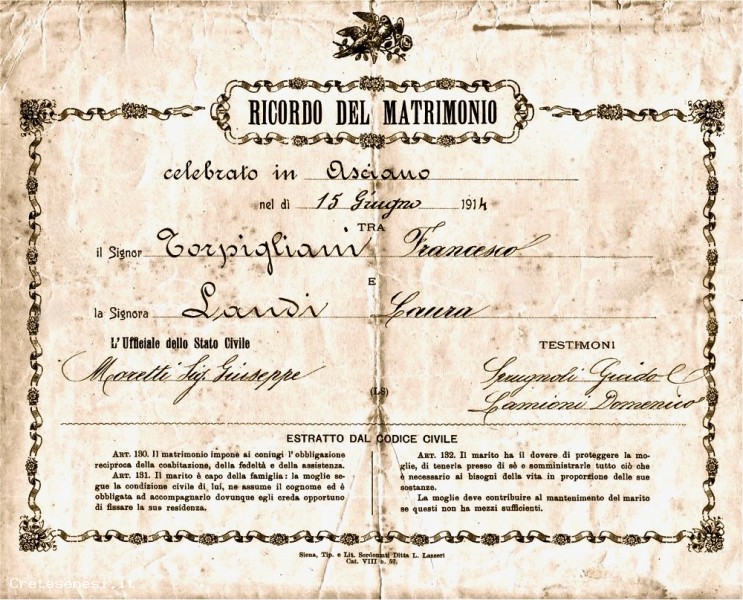 RICORDO DEL MATRIMONIO
celebrato in Asciano
nel dì 15 Giugno 1914
TRA
il Signor Torpigliani Francesco
E
la Signora Landi Laura
L'Ufficiale dello Stato Civile
TESTIMONI
Moretti Sig. Giuseppe
Guido
(LS)
Lamioni Domenico
ESTRATTO DAL CODICE CIVILE
ART. 130. Il matrimonio impone ai coniugi l'obbligazione
reciproca della coabitazione, della fedeltà e della assistenza.
ART. 131. Il marito è capo della famiglia: la moglie se-
gue la condizione civile di lui, ne assume il cognome ed è
obbligata ad accompagnarlo dovunque egli creda opportuno
di fissare la sua residenza.
ART. 132. Il marito ha il dovere di proteggere la mo-
glie, di tenerla presso di sè e somministrarle tutto ciò che
è necessario ai bisogni della vita in proporzione delle sue
sostanze.
La moglie deve contribuire al mantenimento del marito
se questi non ha mezzi sufficienti.
Siena, Tip. e Lit. Sordomuti Ditta L. Lazzeri
Cat. VIII n. 52.
Cretesenesi.it